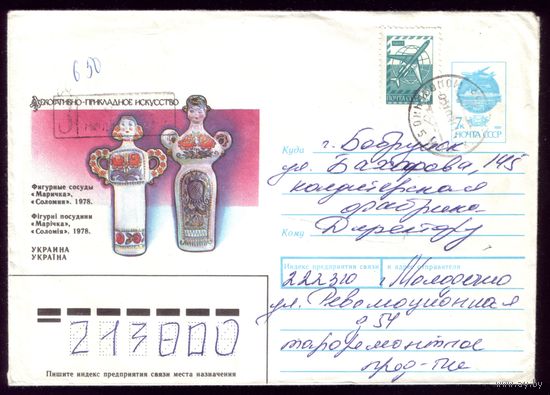 650
ДЕКОРАТИВНО-ПРИКЛАДНОЕ ИСКУССТВО
Фигурные сосуды
«Маричка»,
«Соломия». 1978.
Фігурні посудини
«Марічка»,
«Соломія». 1978.
УКРАИНА
УКРАЇНА
7к
ПОЧТА СССР
Куда г. Бобруйск
ул. Бахарова, 145
кондитерская
фабрика
Кому Директору
Индекс предприятия связи и адрес отправителя
222310 г. Молодечно
ул. Революционная
д 54
тароремонтное
пред-тие
213000
Пишите индекс предприятия связи места назначения